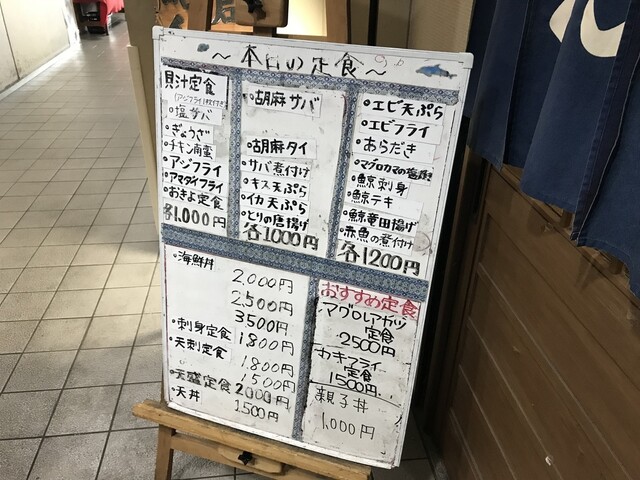 〜本日の定食〜
貝汁定食
(アジフライ1枚付き)
・塩サバ
・ぎょうざ
・チキン南蛮
・アジフライ
・アマダイフライ
・おきよ定食
各1,000円
・胡麻サバ
・胡麻タイ
・サバ煮付け
・キス天ぷら
・イカ天ぷら
・とりの唐揚げ
各1000円
・エビ天ぷら
・エビフライ
・あらだき
・マグロカマの塩焼き
・鯨刺身
・鯨テキ
・鯨竜田揚げ
・赤魚の煮付け
各1200円
・海鮮丼
2,000円
2,500円
3500円
・刺身定食 1,800円
・天刺定食
1,800円
1,500円
・天盛定食 2000円
・天丼
1,500円
おすすめ定食
マグロレアカツ
定食
2500円
カキフライ
定食
1500円
親子丼
1,000円